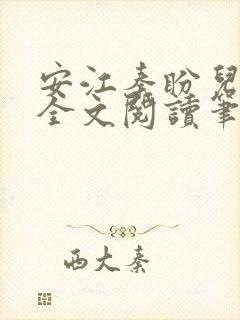 安江秦盼兒
全文閱讀筆
西大秦